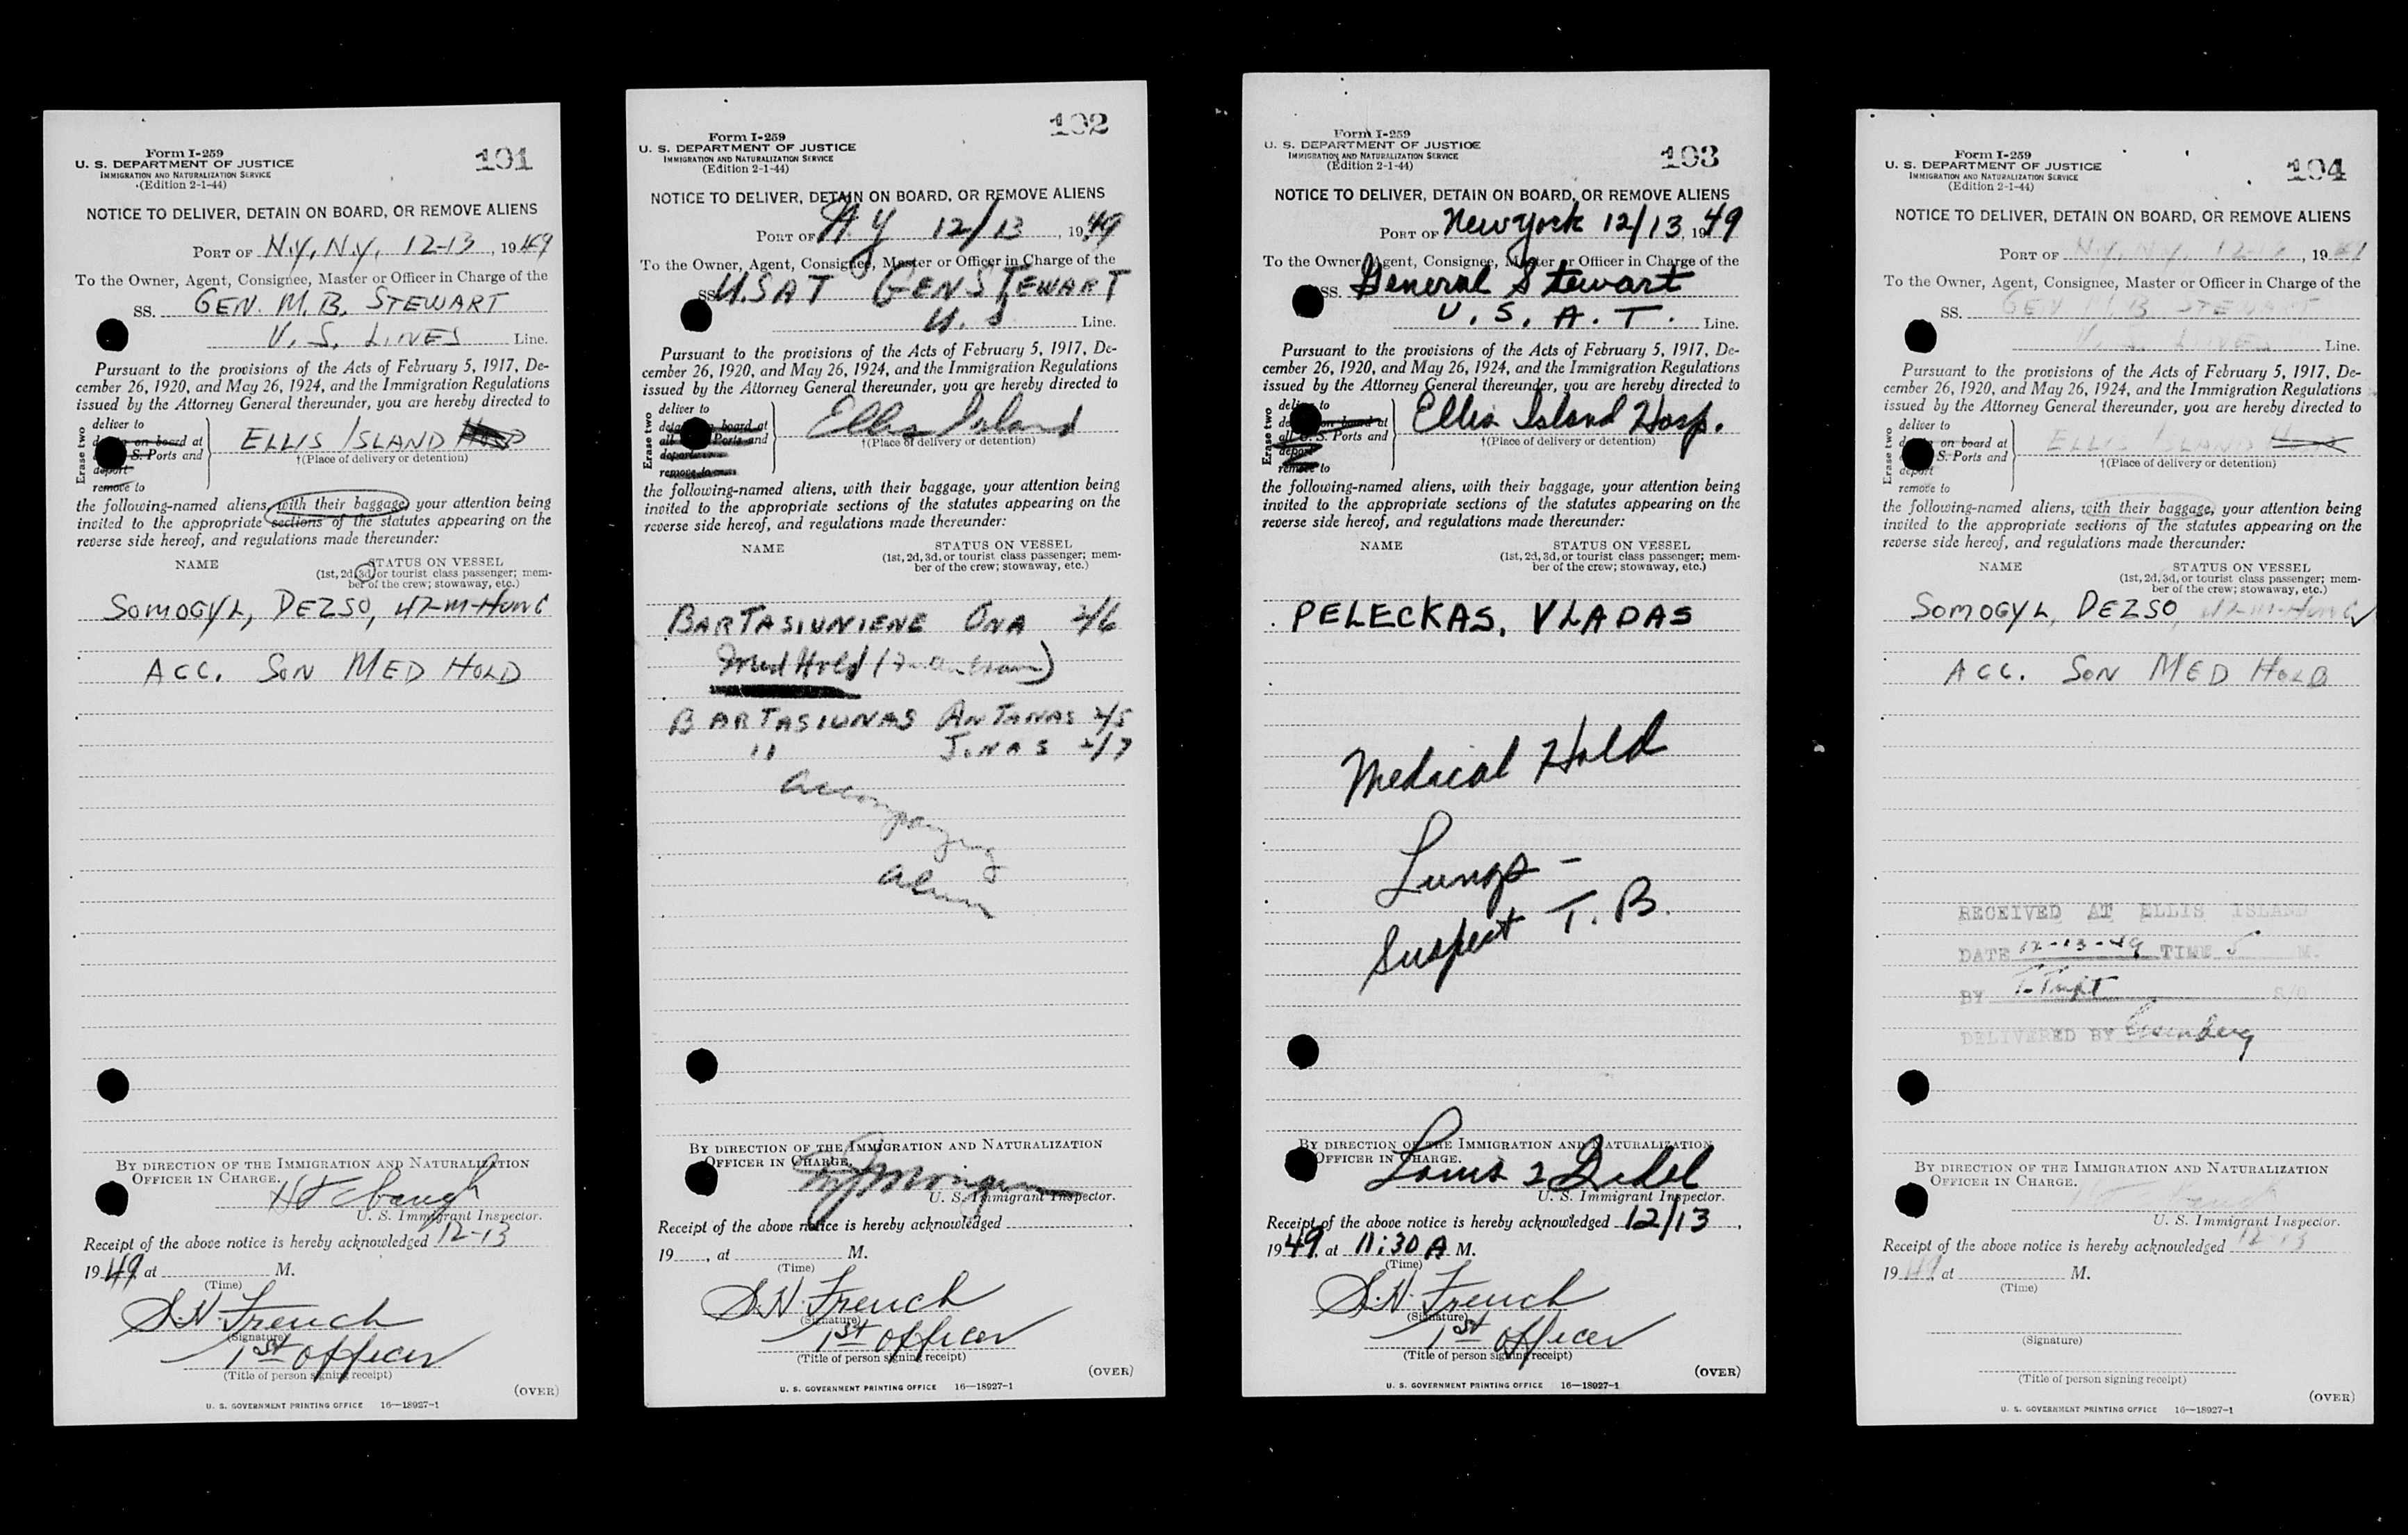 Form I-259
U. S. DEPARTMENT OF JUSTICE
IMMIGRATION AND NATURALIZATION SERVICE
(Edition 2-1-44)
101
NOTICE TO DELIVER, DETAIN ON BOARD, OR REMOVE ALIENS
PORT OF N.Y., N.Y. 12-13, 1949
To the Owner, Agent, Consignee, Master or Officer in Charge of the
SS. GEN. M. B. STEWART
U. S. LINES Line.
Pursuant to the provisions of the Acts of February 5, 1917, De-
cember 26, 1920, and May 26, 1924, and the Immigration Regulations
issued by the Attorney General thereunder, you are hereby directed to
Erase two
deliver to
on board at
S. Ports and
deport
remove to
ELLIS ISLAND
†(Place of delivery or detention)
the following-named aliens, with their baggage, your attention being
invited to the appropriate sections of the statutes appearing on the
reverse side hereof, and regulations made thereunder:
NAME STATUS ON VESSEL
(1st, 2d, 3d, or tourist class passenger; mem-
ber of the crew; stowaway, etc.)
SOMOGYI, DEZSO, 47-M-HUNG
ACC. SON MED HOLD
BY DIRECTION OF THE IMMIGRATION AND NATURALIZATION
OFFICER IN CHARGE.
U. S. Immigrant Inspector.
Receipt of the above notice is hereby acknowledged 12-13
1949, at M.
(Time)
S.N. French
(Signature)
1st Officer
(Title of person signing receipt)
(OVER)
U. S. GOVERNMENT PRINTING OFFICE 16—18927-1
Form I-259
U. S. DEPARTMENT OF JUSTICE
IMMIGRATION AND NATURALIZATION SERVICE
(Edition 2-1-44)
102
NOTICE TO DELIVER, DETAIN ON BOARD, OR REMOVE ALIENS
PORT OF N.Y. 12/13, 1949
To the Owner, Agent, Consignee, Master or Officer in Charge of the
SS. U.S.A.T GEN STEWART
U.S Line.
Pursuant to the provisions of the Acts of February 5, 1917, De-
cember 26, 1920, and May 26, 1924, and the Immigration Regulations
issued by the Attorney General thereunder, you are hereby directed to
Erase two
deliver to
board at
all Ports and
remove to
Ellis Island
†(Place of delivery or detention)
the following-named aliens, with their baggage, your attention being
invited to the appropriate sections of the statutes appearing on the
reverse side hereof, and regulations made thereunder:
NAME STATUS ON VESSEL
(1st, 2d, 3d, or tourist class passenger; mem-
ber of the crew; stowaway, etc.)
BARTASIUNIENE ONA 2/6
Med Hold
BARTASIUNAS ANTANAS 2/5
" JONAS 2/7
accompanying
alien
BY DIRECTION OF THE IMMIGRATION AND NATURALIZATION
OFFICER IN CHARGE.
U. S. Immigrant Inspector.
Receipt of the above notice is hereby acknowledged
19, at M.
(Time)
S.N. French
(Signature)
1st Officer
(Title of person signing receipt)
(OVER)
U. S. GOVERNMENT PRINTING OFFICE 16—18927-1
Form I-259
U. S. DEPARTMENT OF JUSTICE
IMMIGRATION AND NATURALIZATION SERVICE
(Edition 2-1-44)
103
NOTICE TO DELIVER, DETAIN ON BOARD, OR REMOVE ALIENS
PORT OF New York 12/13, 1949
To the Owner, Agent, Consignee, Master or Officer in Charge of the
SS. General Stewart
U. S. A. T. Line.
Pursuant to the provisions of the Acts of February 5, 1917, De-
cember 26, 1920, and May 26, 1924, and the Immigration Regulations
issued by the Attorney General thereunder, you are hereby directed to
Erase two
deliver to
on board at
all U. S. Ports and
deport
remove to
Ellis Island Hosp.
†(Place of delivery or detention)
the following-named aliens, with their baggage, your attention being
invited to the appropriate sections of the statutes appearing on the
reverse side hereof, and regulations made thereunder:
NAME STATUS ON VESSEL
(1st, 2d, 3d, or tourist class passenger; mem-
ber of the crew; stowaway, etc.)
PELECKAS, VLADAS
Medical Hold
Lungs -
Suspect T. B.
BY DIRECTION OF THE IMMIGRATION AND NATURALIZATION
OFFICER IN CHARGE.
Louis
U. S. Immigrant Inspector.
Receipt of the above notice is hereby acknowledged 12/13,
1949, at 11:30 A M.
(Time)
S.N. French
(Signature)
1st Officer
(Title of person signing receipt)
(OVER)
U. S. GOVERNMENT PRINTING OFFICE 16—18927-1
Form I-259
U. S. DEPARTMENT OF JUSTICE
IMMIGRATION AND NATURALIZATION SERVICE
(Edition 2-1-44)
104
NOTICE TO DELIVER, DETAIN ON BOARD, OR REMOVE ALIENS
PORT OF N.Y., N.Y. 12-13, 19
To the Owner, Agent, Consignee, Master or Officer in Charge of the
SS. GEN M. B. STEWART
U. S. LINES Line.
Pursuant to the provisions of the Acts of February 5, 1917, De-
cember 26, 1920, and May 26, 1924, and the Immigration Regulations
issued by the Attorney General thereunder, you are hereby directed to
Erase two
deliver to
on board at
S. Ports and
deport
remove to
ELLIS ISLAND
†(Place of delivery or detention)
the following-named aliens, with their baggage, your attention being
invited to the appropriate sections of the statutes appearing on the
reverse side hereof, and regulations made thereunder:
NAME STATUS ON VESSEL
(1st, 2d, 3d, or tourist class passenger; mem-
ber of the crew; stowaway, etc.)
SOMOGYI, DEZSO, 47-M-HUNG
ACC. SON MED HOLD
RECEIVED AT ELLIS ISLAND
DATE 12-13-49 TIME 5 M.
BY S/O
DELIVERED BY
BY DIRECTION OF THE IMMIGRATION AND NATURALIZATION
OFFICER IN CHARGE.
U. S. Immigrant Inspector.
Receipt of the above notice is hereby acknowledged 12-13
1949, at M.
(Time)
(Signature)
(Title of person signing receipt)
(OVER)
U. S. GOVERNMENT PRINTING OFFICE 16—18927-1